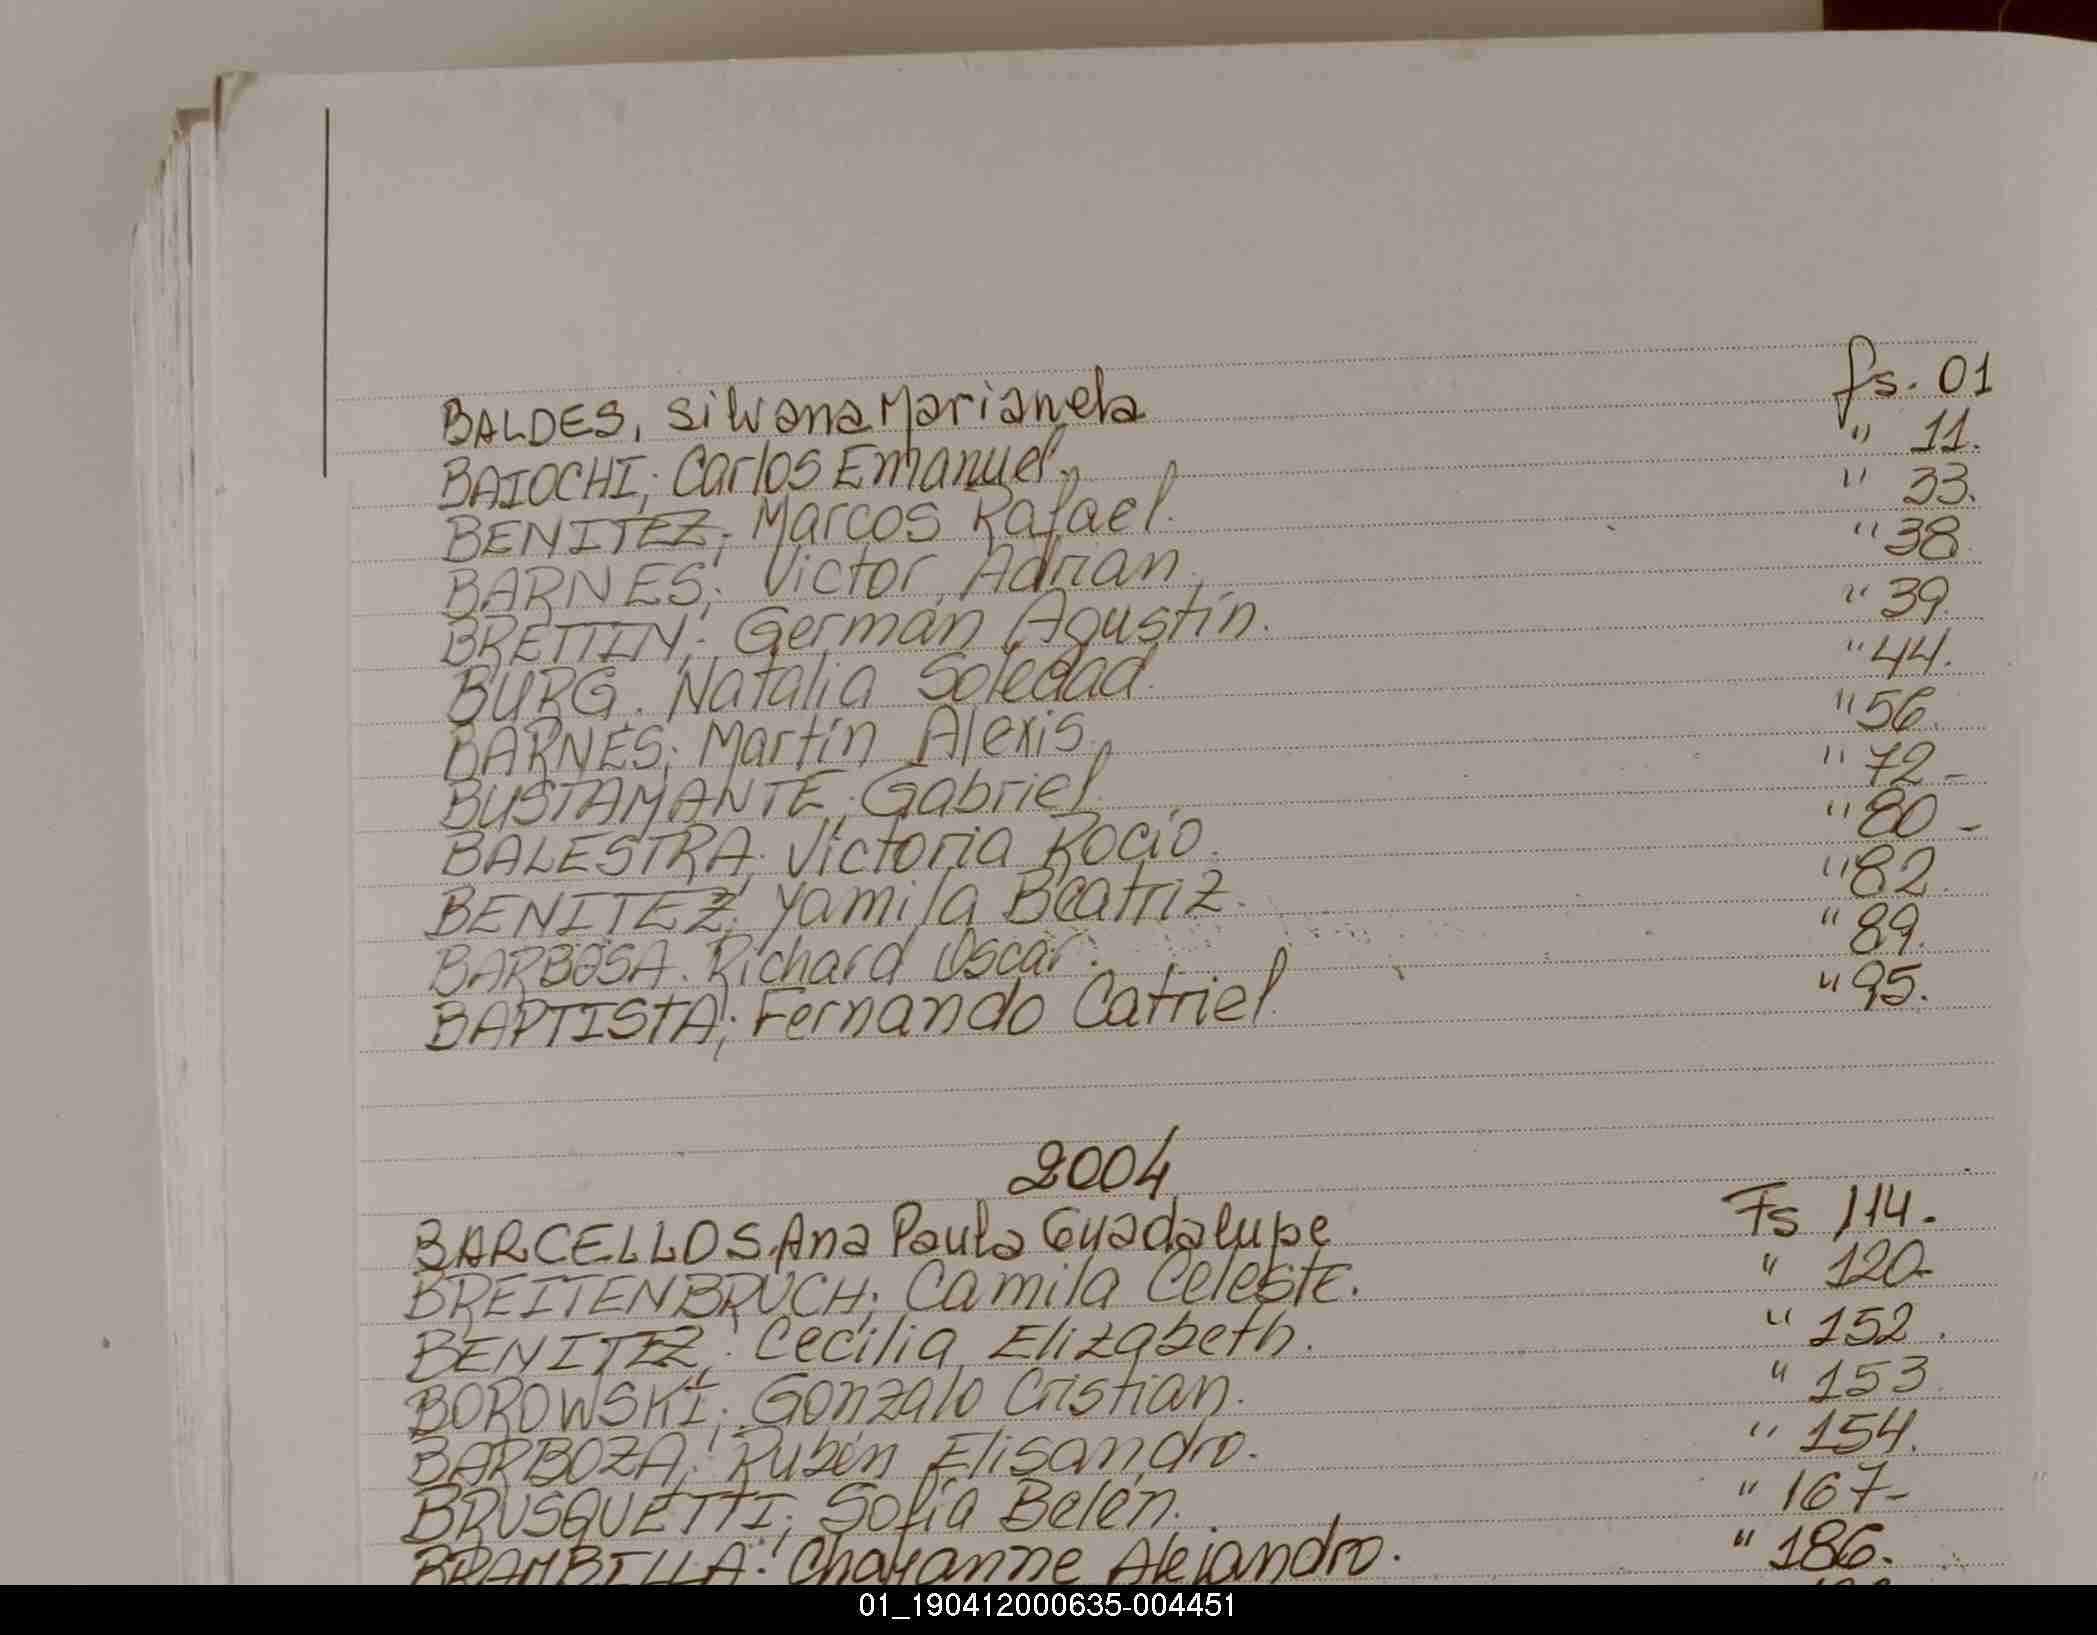 BALDES, Silvana Marianela fs. 01
BAIOCHI; Carlos Emanuel. " 11.
BENITEZ; Marcos Rafael. " 33.
BARNES; Victor Adrian. " 38.
BRETTIN; Germán Agustín. " 39.
BURG. Natalia Soledad. " 44.
BARNES; Martín Alexis. " 56.
BUSTAMANTE; Gabriel. " 72-
BALESTRA; Victoria Rocío. " 80-
BENITEZ; Yamila Beatriz. " 82.
BARBOSA. Richard Oscar. " 89.
BAPTISTA; Fernando Catriel. " 95.
2004
BARCELLOS, Ana Paula Guadalupe Fs 114.
BREITENBRUCH; Camila Celeste. " 120-
BENITEZ; Cecilia Elizabeth. " 152.
BOROWSKI; Gonzalo Cristian. " 153
BARBOZA; Rubén Elisandro. " 154.
BRUSQUETTI; Sofía Belén. " 167-
BRAMBILLA; Chayanne Alejandro. " 186.
01_190412000635-004451